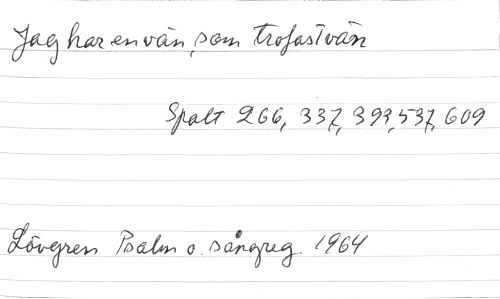 Jag har en vän, som trofast vän
Spalt 266, 337, 393, 537, 609
Lövgren Psalm o. sångreg. 1964